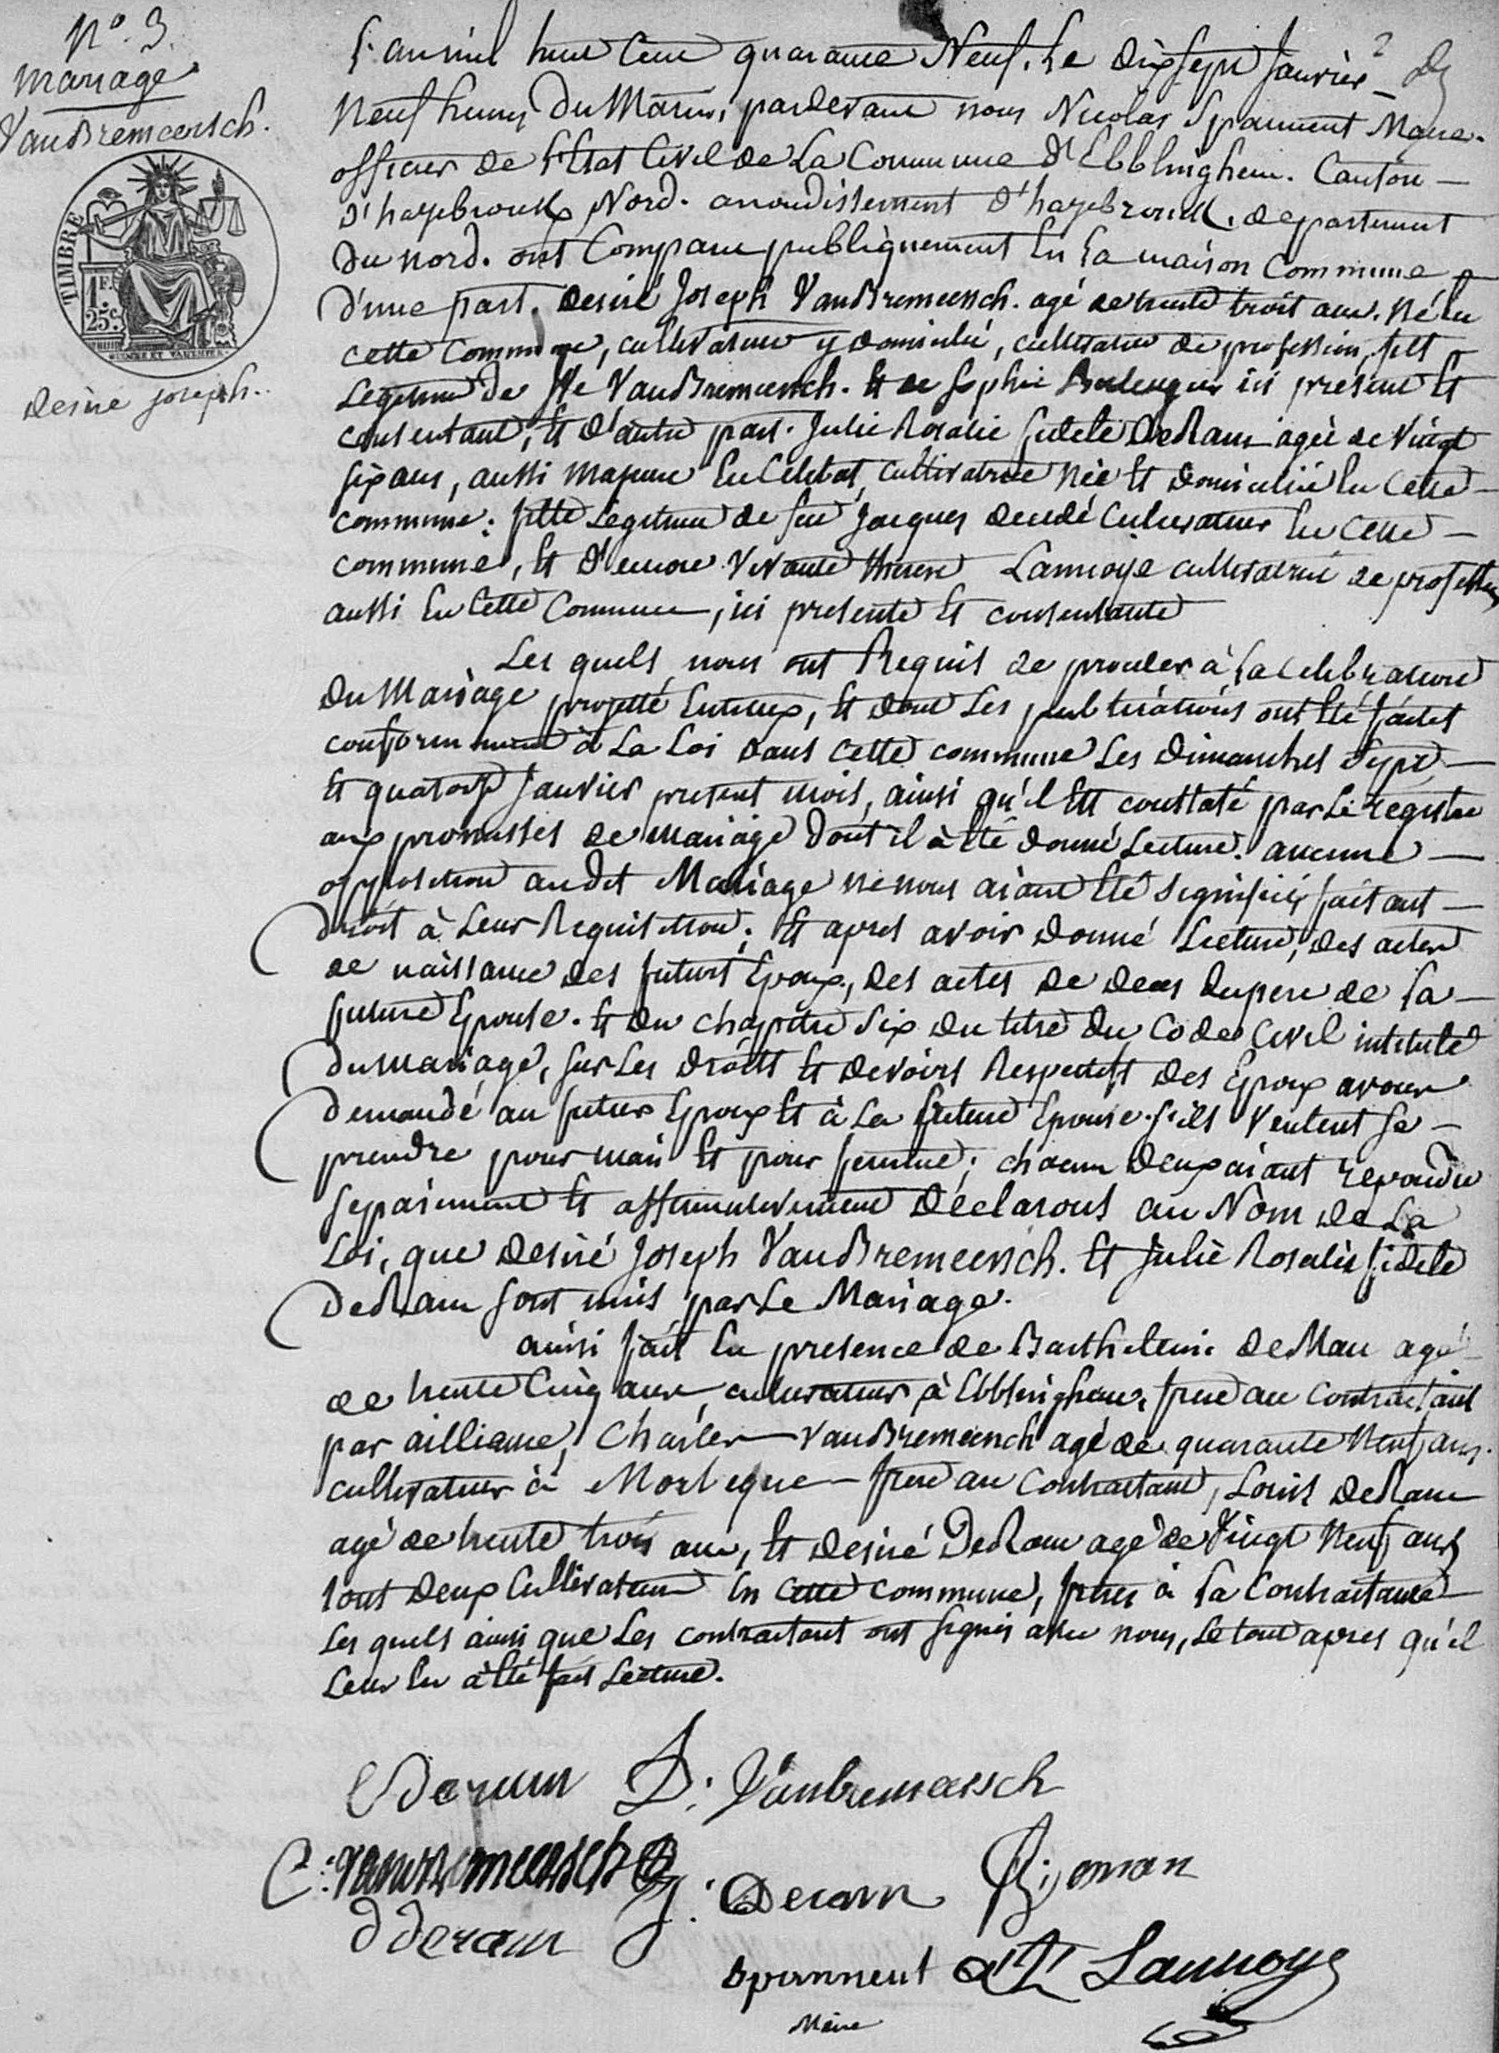 N.º 3.
mariage
VanBremeersch.
TIMBRE
1F.
25c.
Desiré joseph..
L'an mil huit Cent quarante Neuf. Le dixsept Janvier
Neuf heures du Matin, pardevant nous Nicolas Spanneut Maire.
officier de l'Etat Civil de La Commune d'Ebblinghem. Canton
d'hazebrouck, Nord. arrondissement d'hazebrouck, departement
du nord. ont Comparu publiquement En la maison Commune
d'une part. Desiré Joseph VanBremeersch. agé de trente trois ans. né En
cette Commune, cultivateur y domicilié, cultivateur de profession, fils
Legitime de VanBremeersch. Et de Sophie ici présent Et
consentant, Et d'autre part. Julie Rosalie fidele DeRam agée de Vingt
six ans, aussi majeure En Celibat, cultivatrice née Et domiciliée En cette
commune. fille Legitime de feu Jacques decedé Cultivateur En Cette
commune, Et d'encore Vivante therese Lannoye cultivatrice de profession
aussi En Cette Commune, ici presente Et consentante
Les quels nous ont Requis de proceder à la celebration
du Mariage projetté Entreux, Et dont Les publications ont Eté faites
conformement à La Loi dans cette commune Les dimanches Sept
Et quatorze Janvier present mois, ainsi qu'il Est constaté par Le registre
aux promesses de mariage dont il à été donné Lecture. aucune
opposition audit Mariage ne nous aiant Eté signifiée faisant
droit à Leur Requisition; Et apres avoir donné Lecture, des actes
de naissance des futurs Epoux, des actes de deces du pere de la
future Epouse. Et du chapitre Six du titre du Code Civil intitulé
du mariage, sur Les droits Et devoirs Respectifs des Epoux avons
demandé au futur Epoux Et à La future Epouse s'ils Veulent se
prendre pour mari Et pour femme; chacun deux aiant repondu
separement Et affirmativement déclarons au Nom de La
Loi, que Desiré Joseph VanBremeersch. Et Julie Rosalie fidele
DeRam sont unis par Le Mariage.
ainsi fait En presence de Barthelemi DeMan agé
de trente Cinq ans cultivateur à Ebblinghem, frere au Contractant
par aillianse, Charles VanBremeersch agé de quarante Neuf ans.
cultivateur à Morbeque frere au Contractant, Louis DeRam
agé de trente trois ans, Et Desiré DeRam agé de Vingt Neuf ans
tous deux Cultivateurs En cette commune, freres à la Contractante
Les quels ainsi que Les contractant ont signés avec nous, Le tout apres qu'il
Leur En à été fait Lecture.
Deram D: Vanbremeersch
C: vanbremeersch J: Deram B: Deman
D deram
Spanneut Lannoye
Maire